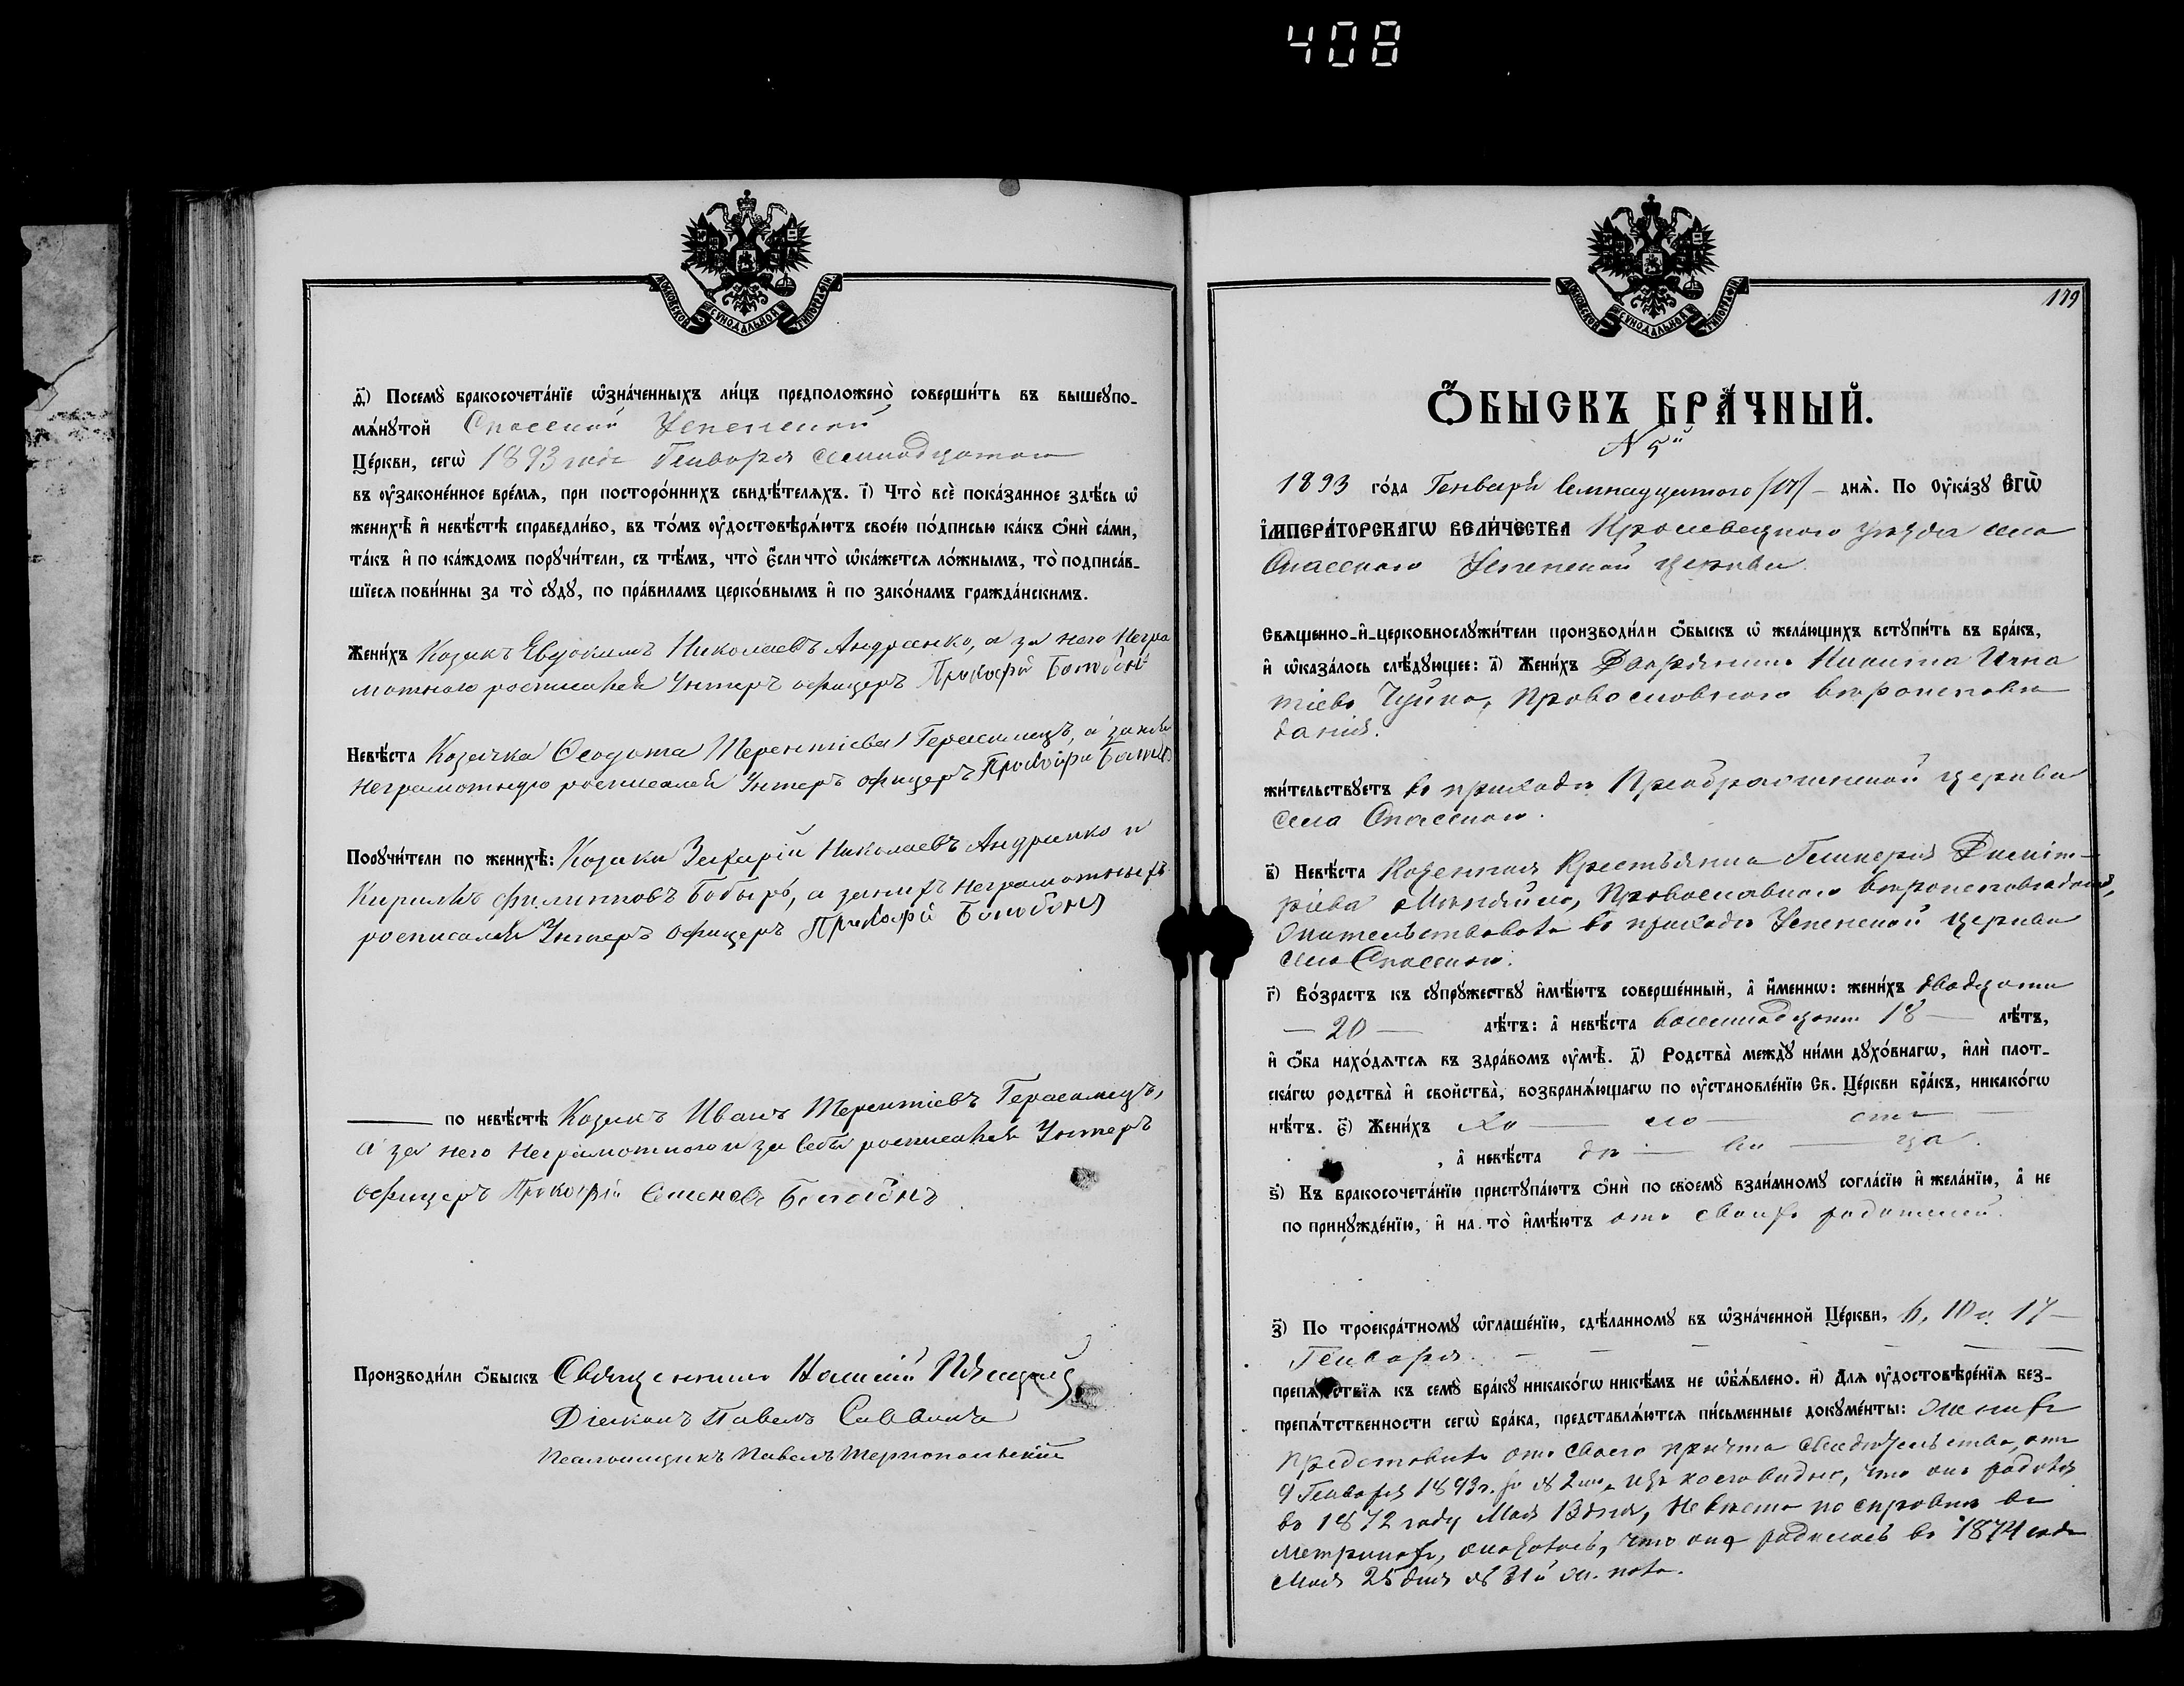 408
МОСКОВСКОЙ СѴНОДАЛЬНОЙ ТИПОГРАФІИ
д҃і) Посемꙋ̀ бракосочета́нїе ѡ҆зна́ченныхъ ли́цъ предположено̀ соверши́ть въ вышеꙋпо-
мѧ́нꙋтой Спасской Успенской
Це́ркви, сегѡ̀ 1893 года Генваря семнадцатаго
въ ᲂу҆законе́нное вре́мѧ, при посторо́ннихъ свидѣ́телѧхъ. і҃) Что̀ всѐ пока́занное здѣ́сь ѡ҆
женихѣ̀ и҆ невѣ́стѣ справедли́во, въ то́мъ ᲂу҆достовѣрѧ́ютъ свое́ю по́дписью ка́къ ѻ҆нѝ са́ми,
та́къ и҆ по ка́ждомъ порꙋчи́тели, съ тѣ́мъ, что̀ є҆́сли что̀ ѡ҆ка́жетсѧ ло́жнымъ, то̀ подписа́в-
шїесѧ пови́нны за то̀ сꙋдꙋ̀, по пра́виламъ церко́внымъ и҆ по зако́намъ гражда́нскимъ.
Жени́хъ Козакъ Евдокимъ Николаевъ Андрѣнко, а за него Негра
мотнаго росписался Унтеръ офицеръ Прокофій
Невѣ́ста Козачка Ѳеодота Терентіева Герасимецъ, а за нея
Неграмотную росписался Унтеръ офицеръ Прокофій
Порꙋчи́тели по женихѣ̀: Козаки Захарій Николаевъ Андрѣнко и
Кирилъ Филиповъ Бобырь, а за нихъ неграмотныхъ
росписался Унтеръ офицеръ Прокофій
по невѣ́стѣ Козакъ Иванъ Терентіевъ Герасимецъ,
а за него Неграмотнаго и за себя росписался Унтеръ
офицеръ Прокофій Семеновъ
Производи́ли ѻ҆́быскъ Священникъ
Діаконъ Павелъ Саввичъ
Псаломщикъ Павелъ Тернопольскій
179
МОСКОВСКОЙ СѴНОДАЛЬНОЙ ТИПОГРАФІИ
Ѻ҆́БЫСКЪ БРА́ЧНЫЙ.
№ 5й
1893 го́да Генваря Семнадцатого /17/ - днѧ̀. По Оу҆ка́зꙋ Є҆ГѠ̀
И҆МПЕРА́ТОРСКАГѠ ВЕЛИ́ЧЕСТВА Кролевецкого уѣзда села
Спасского Успенской церкви
Свѧщенно-и҆-церковнослꙋжи́тели производи́ли ѻ҆́быскъ ѡ҆ жела́ющихъ встꙋпи́ть въ бра́къ,
и҆ ѡ҆каза́лось слѣ́дꙋющее: а҃) Жени́хъ Дворянинъ Никита Игна
тіевъ Чуйко, Православного вѣроисповѣ
данія.
жи́тельствꙋетъ въ приходѣ Преображенской церкви
села Спасского.
в҃) Невѣ́ста Козенная Крестьянка Гликерія Димит-
ріева Православного вѣроисповѣданія,
жительствовала въ приходѣ Успенской церкви
села Спасского.
г҃) Во́зрастъ къ сꙋпрꙋ́жествꙋ и҆мѣ́ютъ соверше́нный, а҆ и҆́меннѡ: жени́хъ двадцати
— 20 — лѣ́тъ: а҆ невѣ́ста восемнадцати 18 — лѣ́тъ,
и҆ ѻ҆́ба нахо́дѧтсѧ въ здра́вомъ ᲂу҆мѣ̀. д҃) Родства̀ междꙋ̀ ни́ми дꙋхо́внагѡ, и҆лѝ плот-
ска́гѡ родства̀ и҆ свойства̀, возбранѧ́ющагѡ по ᲂу҆становле́нїю Св. Це́ркви бра́къ, никако́гѡ
нѣ́тъ. є҃) Жени́хъ хо — ло — стъ —
, а҆ невѣ́ста дѣ — ви — ца.
ѕ҃) Къ бракосочета́нїю пристꙋпа́ютъ ѻ҆нѝ по своемꙋ̀ взаи́мномꙋ согла́сїю и҆ жела́нїю, а҆ не
по принꙋжде́нїю, и҆ на то̀ и҆мѣ́ютъ отъ своихъ родителей.
з҃) По троекра́тномꙋ ѡ҆глаше́нїю, сдѣ́ланномꙋ въ ѡ҆зна́ченной Це́ркви, 6, 10 и 17 —
Генваря.
препѧ́тствїѧ къ семꙋ̀ бра́кꙋ никако́гѡ никѣ́мъ не ѡ҆б̾ѧ́влено. и҃) Длѧ ᲂу҆достовѣре́нїѧ без-
препѧ́тственности сегѡ̀ бра́ка, представлѧ́ютсѧ пи́сьменные докꙋме́нты: женихъ
представилъ отъ своего причта свидѣтельство, отъ
9 Генваря 1893 г. за № 2мъ, изъ коего видно, что онъ родился
въ 1872 году Мая 13 дня, Невѣста по справкѣ въ
метрикахъ, оказалось, что она родилась въ 1874 годѣ
Мая 25 дня № 31й